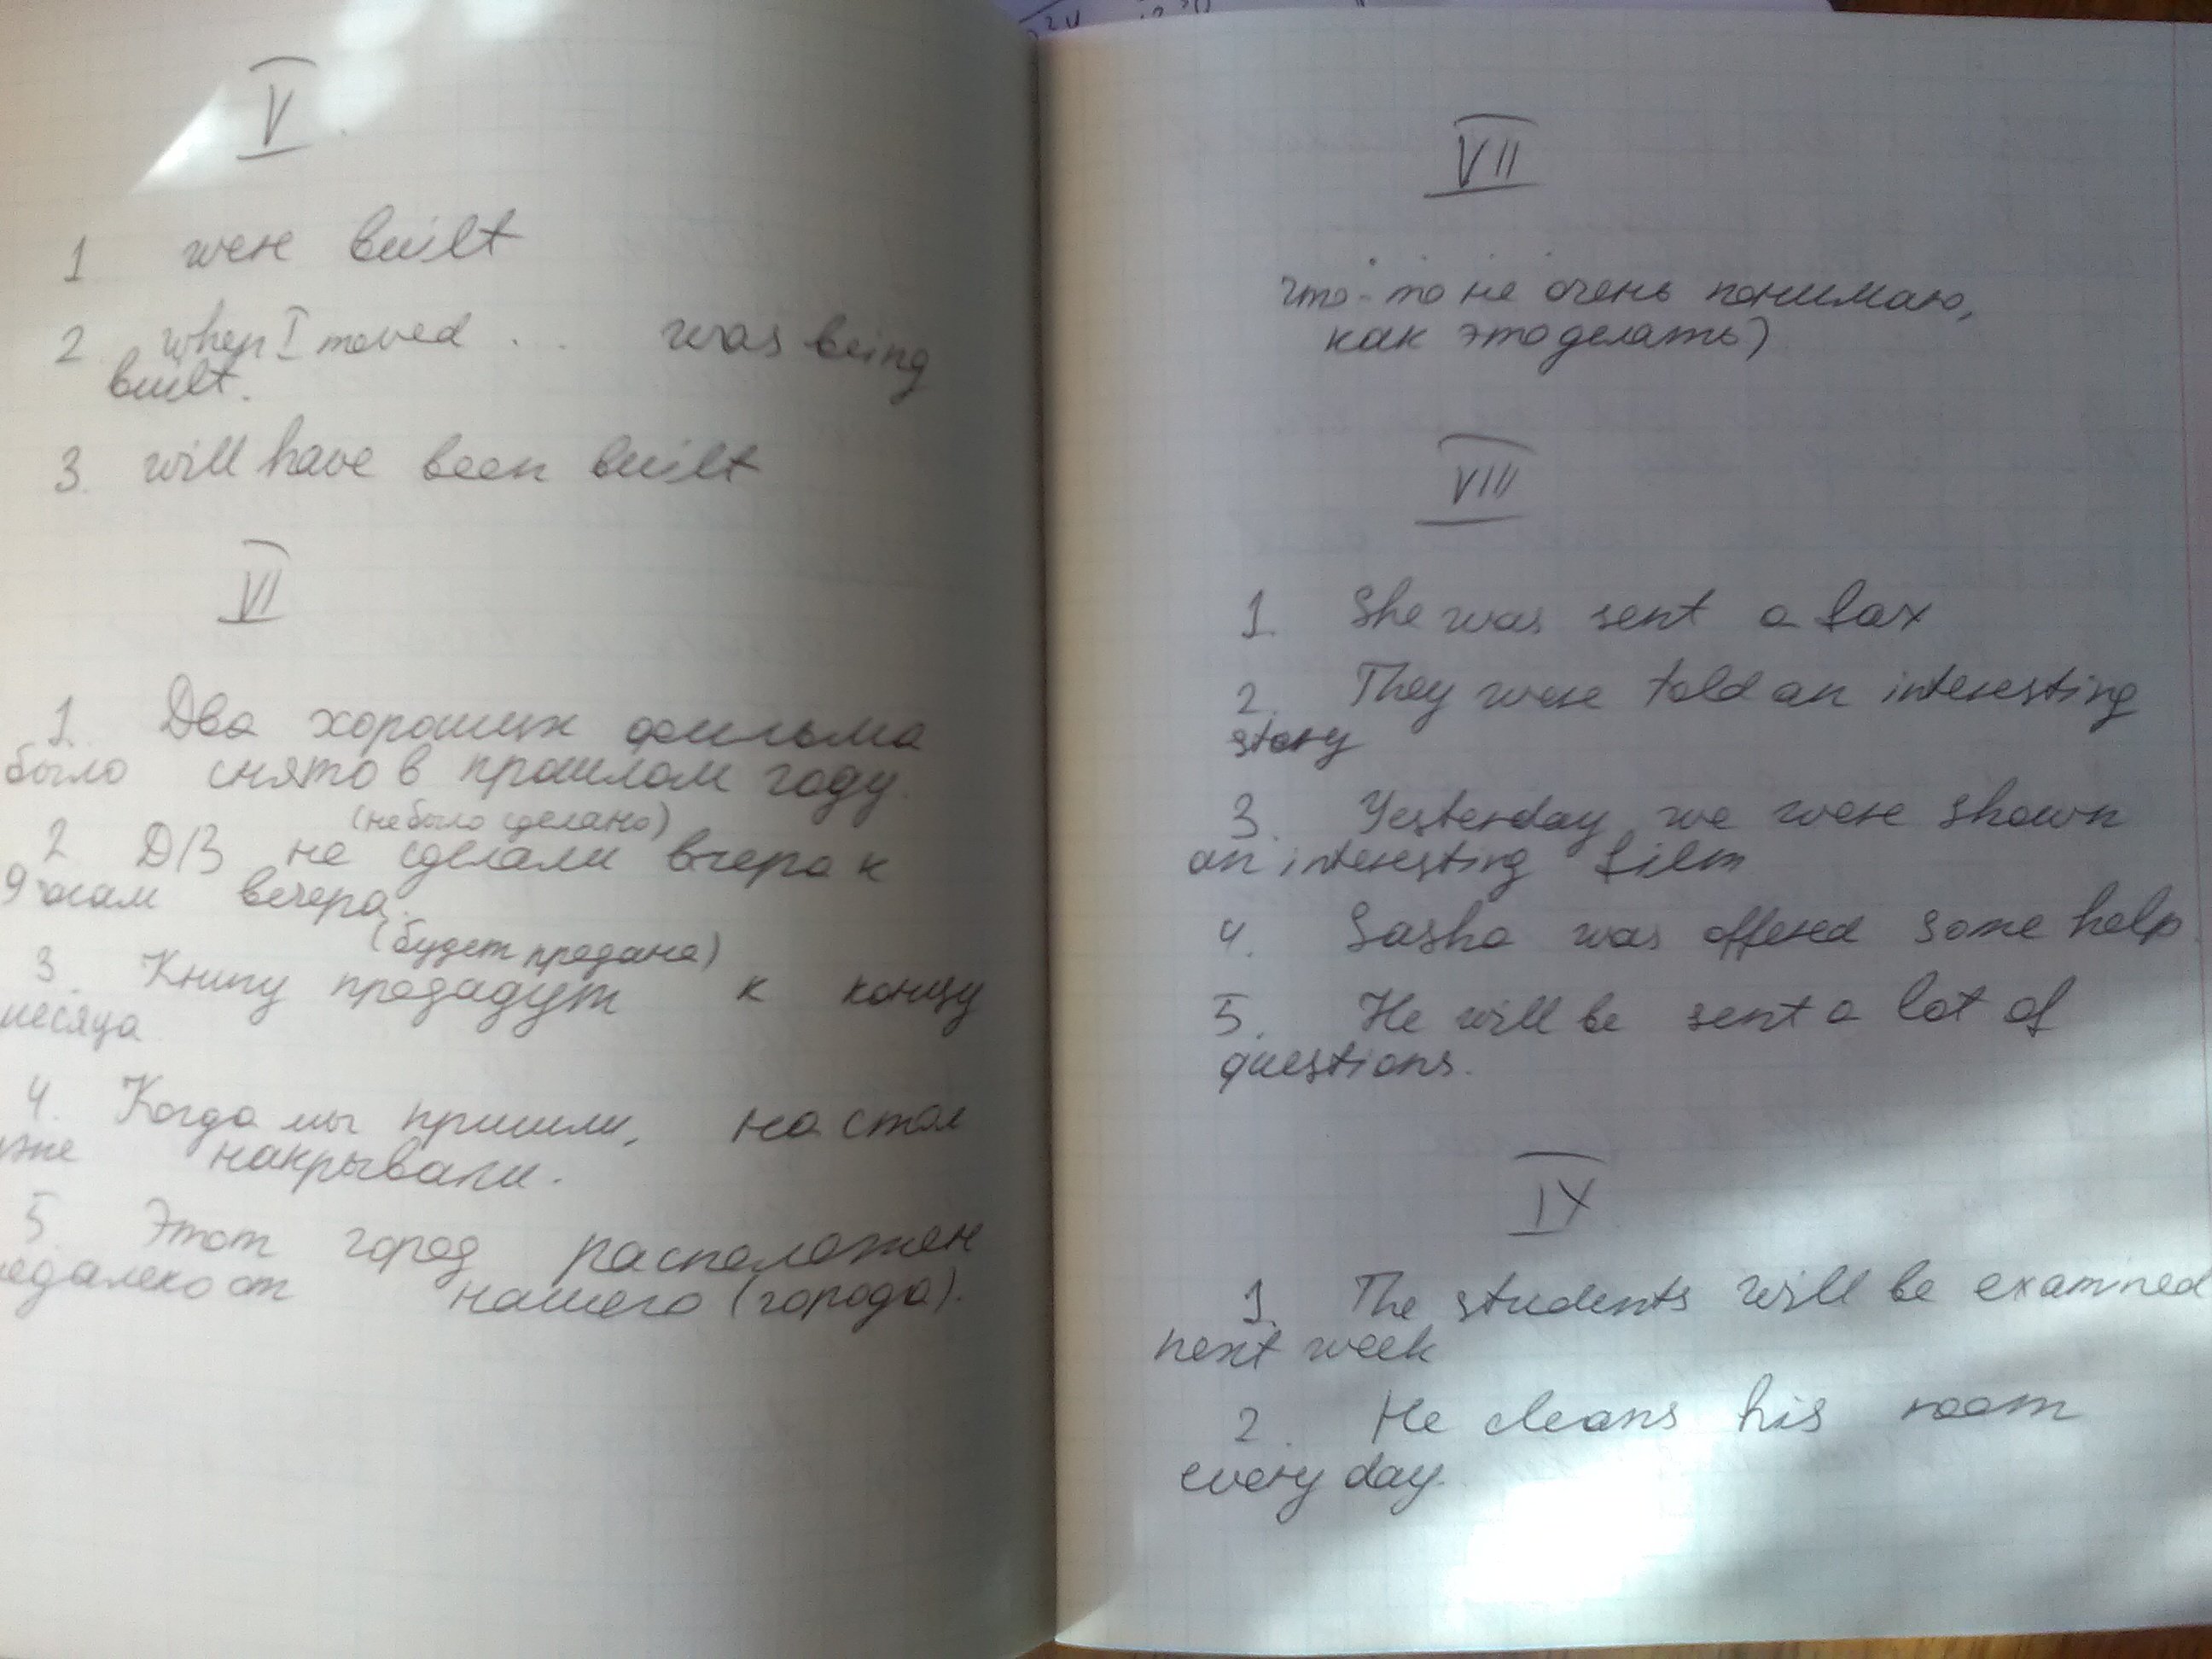 V
1 were built
2 when I moved ... was being
built.
3. will have been built
VI
1. Два хороших фильма
было снято в прошлом году.
(не было сделано)
2 Д/З не сделали вчера к
9 часам вечера.
(будет продана)
3. Книгу продадут к концу
месяца
4. Когда мы пришли, на стол
уже накрывали.
5 Этот город расположен
недалеко от нашего (города).
VII
что-то не очень понимаю,
как это делать)
VIII
1. She was sent a fax
2. They were told an interesting
story
3. Yesterday we were shown
an interesting film
4. Sasha was offered some help
5. He will be sent a lot of
questions.
IX
1. The students will be examined
next week
2. He cleans his room
every day.